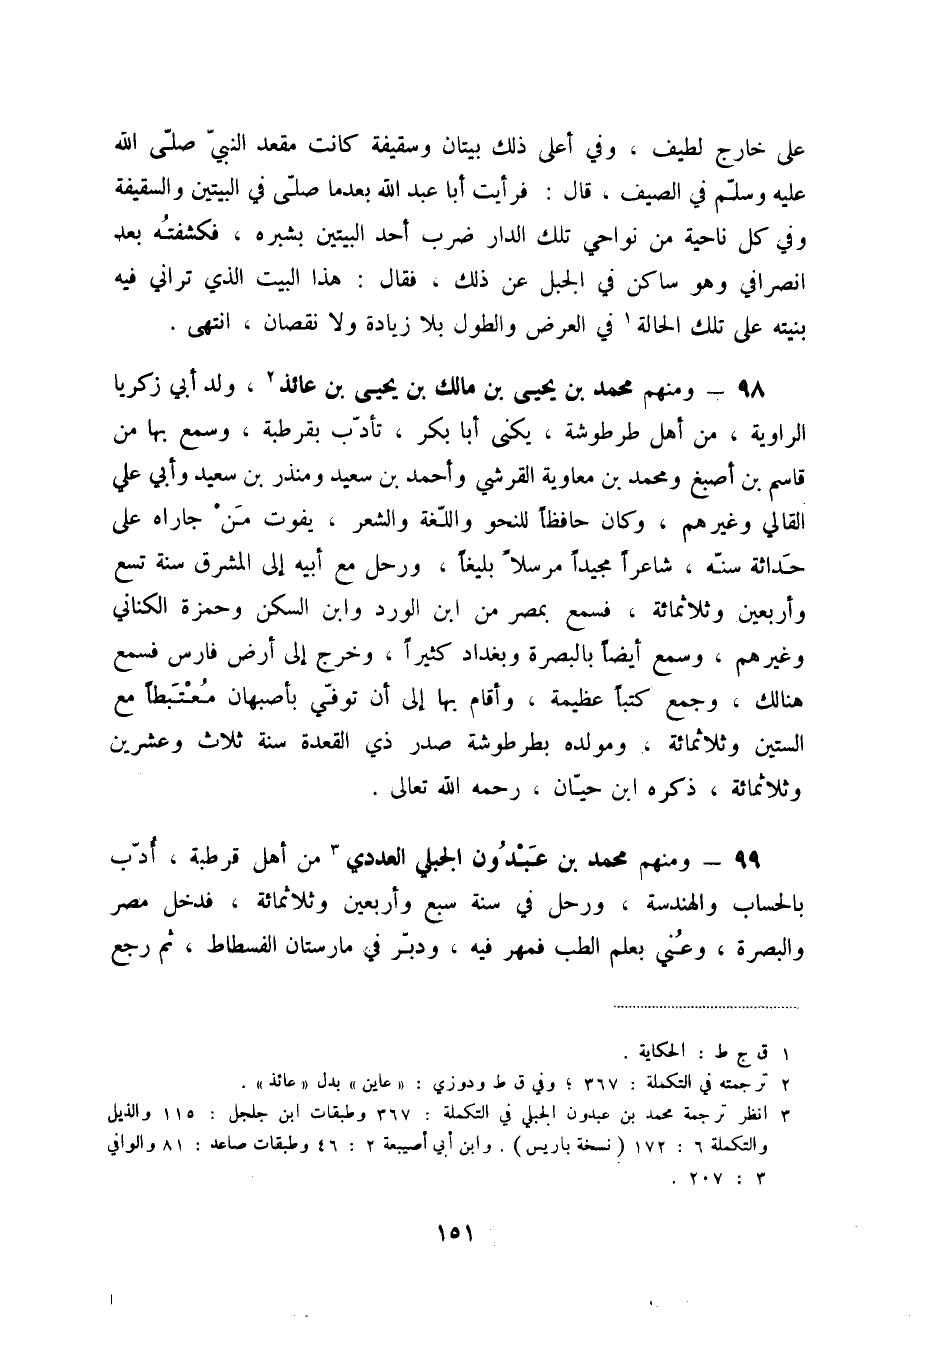 على خارج لطيف ، وفي أعلى ذلك بيتان وسقيفة كانت مقعد النبيّ صلّى الله
عليه وسلّم في الصيف ، قال : فرأيت أبا عبد الله بعدما صلّى في البيتين والسقيفة
وفي كل ناحية من نواحي تلك الدار ضرب أحد البيتين بشبره ، فكشفتُه بعد
انصرافي وهو ساكن في الجبل عن ذلك ، فقال : هذا البيت الذي تراني فيه
بنيته على تلك الحالة ١ في العرض والطول بلا زيادة ولا نقصان ، انتهى .
٩٨ – ومنهم محمد بن يحيى بن مالك بن يحيى بن عائذ ٢ ، ولد أبي زكريا
الراوية ، من أهل طرطوشة ، يكنى أبا بكر ، تأدّب بقرطبة ، وسمع بها من
قاسم بن أصبغ ومحمد بن معاوية القرشي وأحمد بن سعيد ومنذر بن سعيد وأبي علي
القالي وغيرهم ، وكان حافظاً للنحو واللّغة والشعر ، يفوت مَنْ جاراه على
حَداثة سنّه ، شاعراً مجيداً مرسلاً بليغاً ، ورحل مع أبيه إلى المشرق سنة تسع
وأربعين وثلاثمائة ، فسمع بمصر من ابن الورد وابن السكن وحمزة الكناني
وغيرهم ، وسمع أيضاً بالبصرة وبغداد كثيراً ، وخرج إلى أرض فارس فسمع
هنالك ، وجمع كتباً عظيمة ، وأقام بها إلى أن توفّي بأصبهان مُعْتَبَطاً مع
الستين وثلاثمائة ، ومولده بطرطوشة صدر ذي القعدة سنة ثلاث وعشرين
وثلاثمائة ، ذكره ابن حيّان ، رحمه الله تعالى .
٩٩ – ومنهم محمد بن عَبْدُون الجبلي العددي ٣ من أهل قرطبة ، أُدّب
بالحساب والهندسة ، ورحل في سنة سبع وأربعين وثلاثمائة ، فدخل مصر
والبصرة ، وعُني بعلم الطب فمهر فيه ، ودبّر في مارستان الفسطاط ، ثم رجع
١ ق ج ط : الحكاية .
٢ ترجمته في التكملة : ٣٦٧ ؛ وفي ق ط ودوزي : « عاين » بدل « عائذ » .
٣ انظر ترجمة محمد بن عبدون الجبلي في التكملة : ٣٦٧ وطبقات ابن جلجل : ١١٥ والذيل
والتكملة ٦ : ١٧٢ ( نسخة باريس ) . وابن أبي أصيبعة ٢ : ٤٦ وطبقات صاعد : ٨١ والوافي
٣ : ٢٠٧ .
١٥١